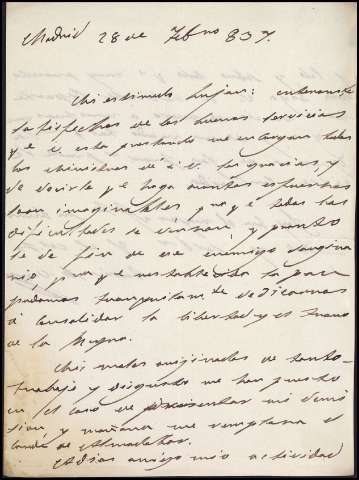 Madrid 28 de Feb.ro 837.
Mi estimado Lujan: enteramte
satisfechos de los buenos servicios
q e V. está prestando me encargan todos
los ministros dé á V. las gracias, y
de decirle q e haga cuantos esfuerzos
sean imaginables p a q e todas las
dificultades se venzan, y pronto
se dé fin de ese enemigo sangui
nario, p a q e restablecida la paz
podamos tranquilam.te dedicarnos
á consolidar la libertad y el trono
de la Reyna.
Mis males originados de tanto
trabajo y disgusto me han puesto
en el caso de presentar mi dimi
sion, y mañana me remplaza el
Conde de Almodobar.
Adios amigo mio actividad